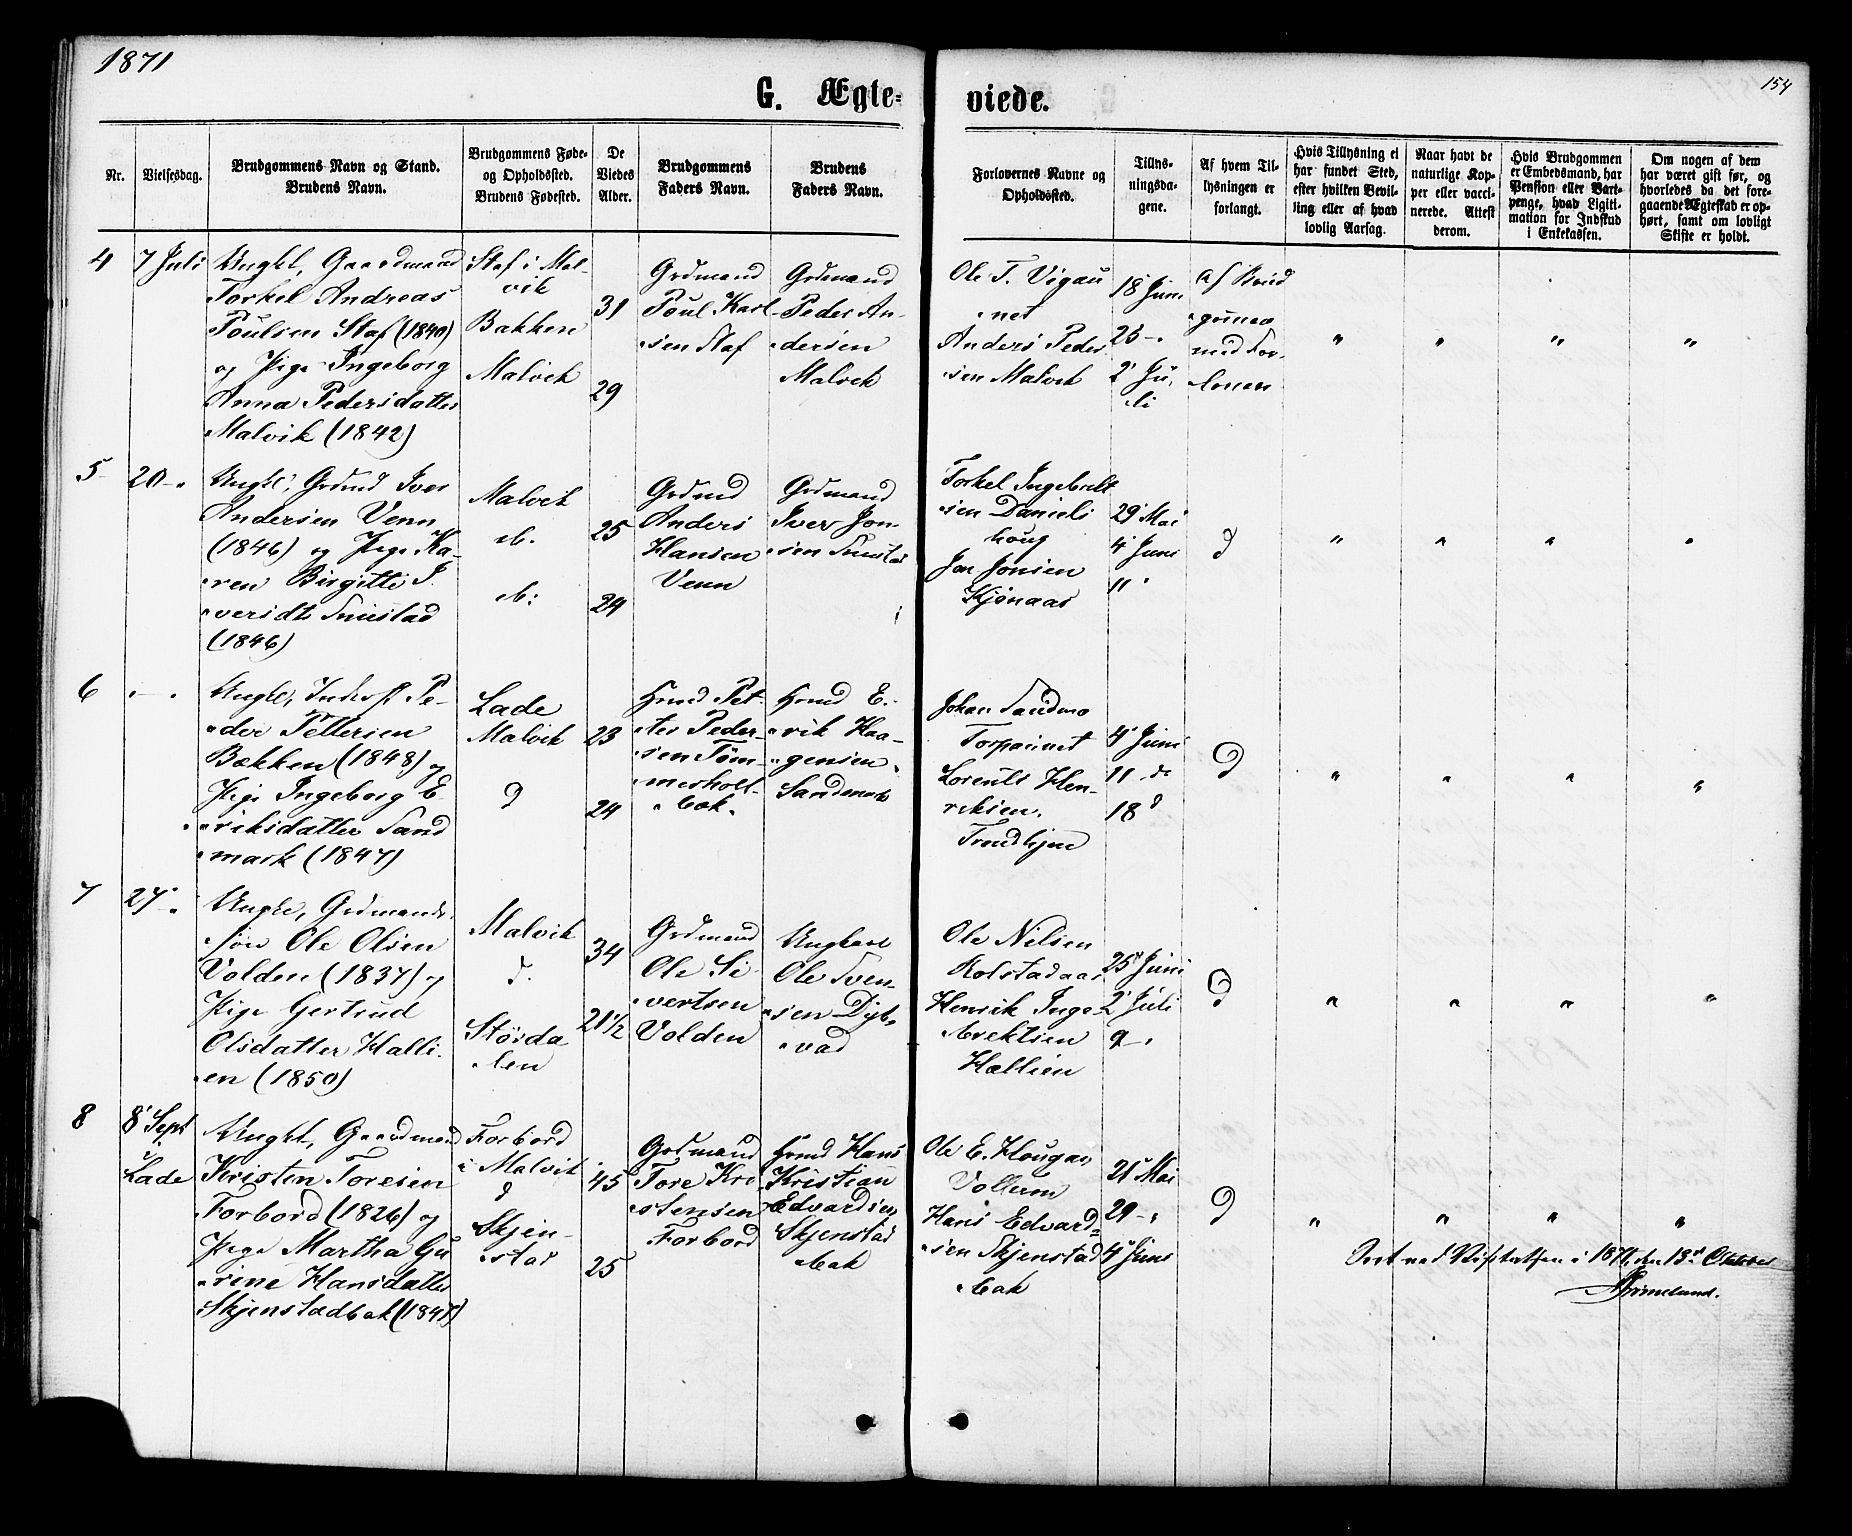 1871
154
G. Ægte=
viede.
Nr.
Vielsesdag.
Brudgommens Navn og Stand.
Brudens Navn.
Brudgommens Føde-
og Opholdssted.
Brudens Fødested.
De
Viedes
Alder.
Brudgommens
Faders Navn.
Brudens
Faders Navn.
Forlovernes Navne og
Opholdssted.
Tillys-
ningsda-
gene.
Af hvem Til-
lysningen er
forlangt.
Hvis Tillysning ei
har fundet Sted,
efter hvilken Bevil-
ling eller af hvad
lovlig Aarsag.
Naar havt de
naturlige Kop-
per eller vacci-
nerede. Attest
derom.
Hvis Brudgommen
er Embedsmand, har
Pension eller Vart-
penge, hvad Ligiti-
mation for Indskud
i Enkekassen.
Om nogen af dem
har været gift før, og
hvorledes da det fore-
gaaende Ægteskab er op-
hørt, samt om lovligt
Skifte er holdt.
4
7 Juli
Ungkl, Gaardmand
Torkel Andreas
Poulsen Staf (1840)
og Pige Ingeborg
Anna Pedersdatter
Malvik (1842)
Staf i Mal-
vik
Bakken
Malvik
31
29
Grdmand
Poul Karl-
sen Staf
Grdmand
Peder An-
dersen
Malvik
Ole T. Vigau
net
Anders Peder
sen Malvik
18 Juni
25 -
2 Ju-
li
af Brud
gommen
med For-
loveren
" " " "
5
20 -
Ungkl, Grdmd Iver
Andersen Venn
(1846) og Pige Ka-
ren Birgitte I-
versdt Smistad
(1846)
Malvik
d.
d:
25
24
Grdmd
Anders
Hansen
Venn
Grdmand
Iver Jon-
sen Smistad
Torkel Ingebrikt
sen Daniels
houg
Jon Jonsen
Kjønaas
29 Mai
4 Juni
11
d
" " " "
6
- -
Ungkl, Inderst Pe-
der Pettersen
Bækken (1848) og
Pige Ingeborg E-
riksdatter Sand
mark (1847)
Lade
Malvik
d
23
24
Hmd Pet
ter Peder-
sen Tøm-
mesholt-
bak.
Hmd E-
rik Haa-
gensen
Sandmark
Johan Sandmo
Torpaunet
Lorents Hen-
riksen.
Trondhjem
4 Juni
11 do
18 d
d
" " " "
7
27 -
Ungkl, Grdmands-
søn Ole Olsen
Volden (1837) og
Pige Gertrud
Olsdatter Halli-
en (1850)
Malvik
d.
Størda
len
34
21 1/2
Grdmand
Ole Si-
vertsen
Volden
Ungkarl
Ole Sven-
sen Dyb-
vad
Ole Nilsen
Rolstadaas
Henrik Inge-
brektsen
Hallien
25 Juni
2 Juli
9 -
d
" " " "
8
8 Sept
Lade
Ungkl, Gaardmand
Kristen Toresen
Forbord (1826) og
Pige Martha Gu
rine Hansdatter
Skjenstadbak (1847)
Forbord
i Malvik
d
Skjen-
stad
45
25
Grdmand
Tore Kri
stensen
Forbord
Hmd Hans
Kristian
Edvardsen
Skjenstad
bak
Ole E. Hougan,
Vollum
Hans Edvard=
sen Skjenstad
bak
21 Mai
29 -
4 Juni
d
" " " "
ved Visitatsen i 1871, den 13de Oktober
Grimelund.